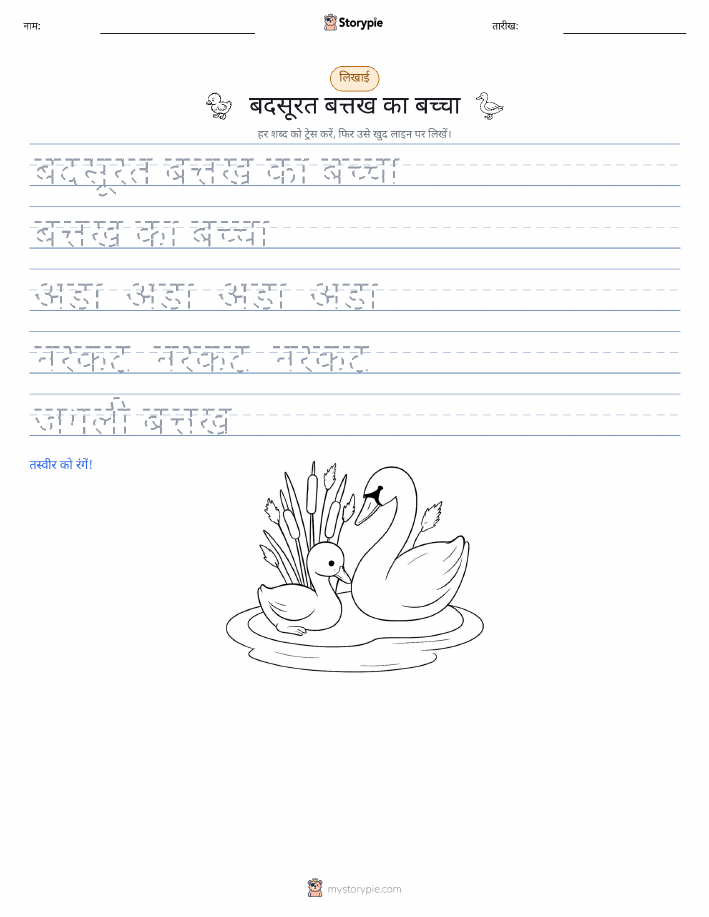 नाम:
Storypie
तारीख:
लिखाई
बदसूरत बत्तख का बच्चा
हर शब्द को ट्रेस करें, फिर उसे खुद लाइन पर लिखें।
बदसूरत बत्तख का बच्चा
बत्तख का बच्चा
अडा अडा अडा अडा
नरकट नरकट नरकट
जगली बत्तख
तस्वीर को रंगें!
mystorypie.com